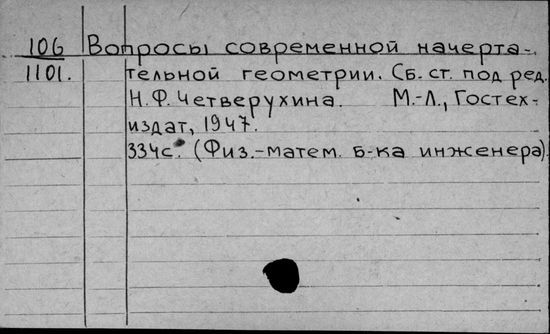 106 Вопросы современной начерта-
1101. тельной геометрии. Сб. ст. под ред.
Н.Ф. Четверухина. М.-Л., Гостех-
издат, 1947.
334с. (Физ.-матем. б-ка инженера).